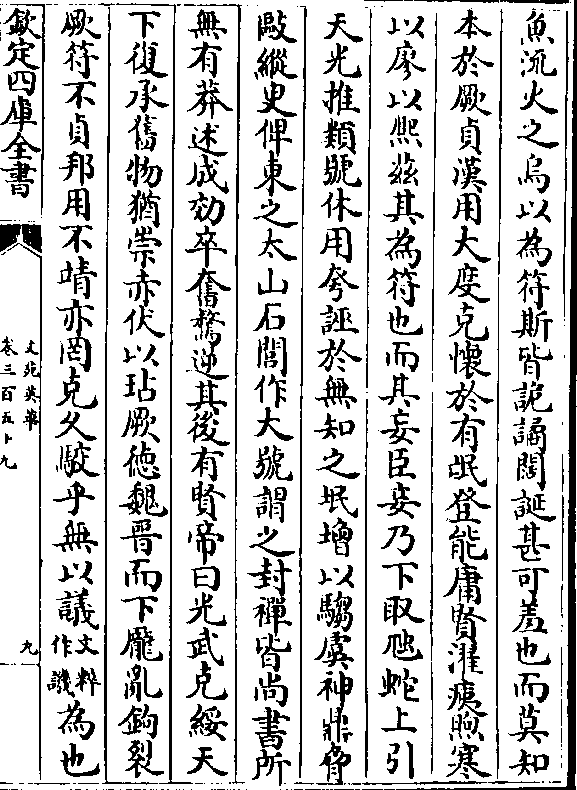 魚流火之烏以為符斯皆詭譎闊誕甚可羞也而莫知
本於厥貞漢用大度克懷於有氓登能庸賢濯痍煦寒
以廖以熙茲其為符也而其妄臣妾乃下取虺蛇上引
天光推類號休用夸誣於無知之氓增以騶虞神鼎脅
敺縱㕜俾東之太山石閭作大號謂之封禪皆尚書所
無有莽述成効卒奮驁逆其後有賢帝曰光武克綏天
下復承舊物猶崇赤伏以玷厥德魏晉而下厖亂鉤裂
厥符不貞邦用不靖亦罔克久駮乎無以議文粹作譏為也
欽定四庫全書
文苑英華
卷三百五十九
九